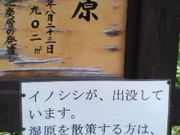 原
年八月二十三日
九〇二㎡
・イノシシが、出没して
います。
湿原を散策する方は、